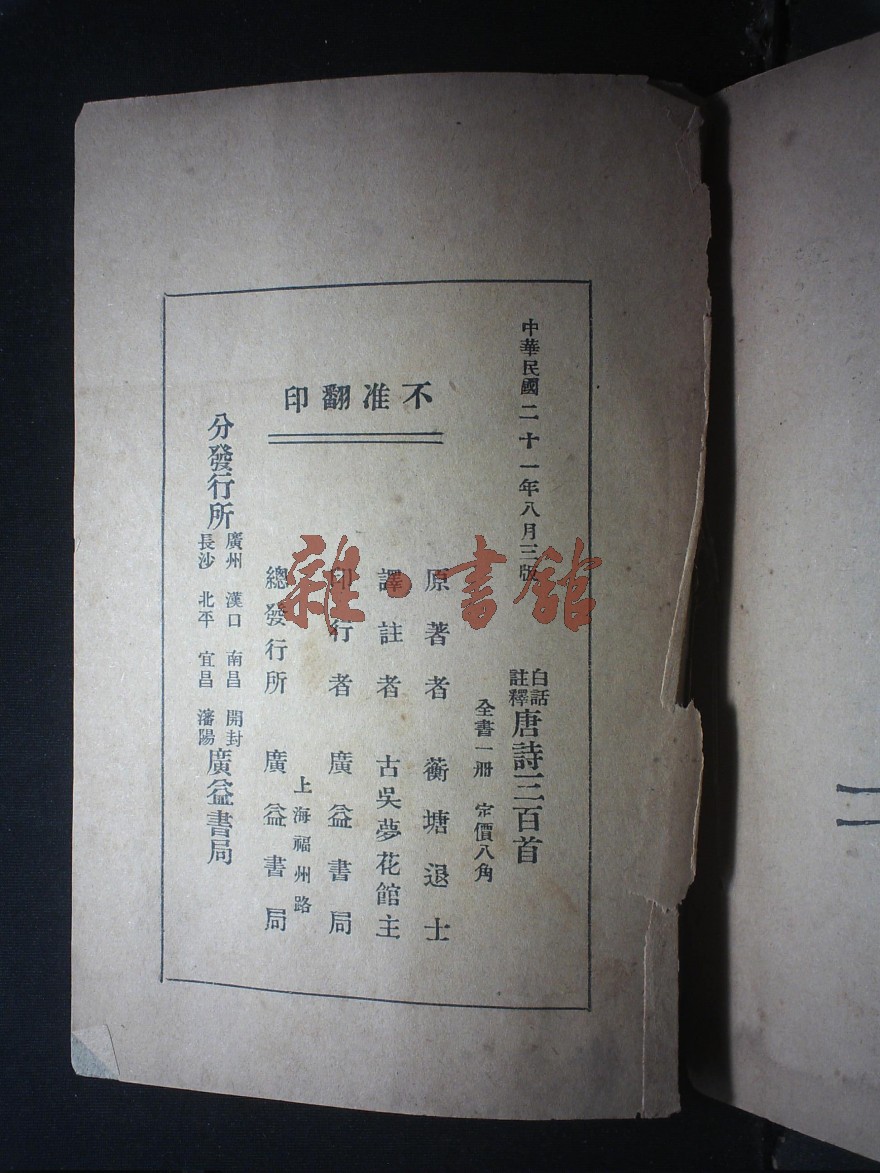 中華民國二十一年八月三版
白話註釋唐詩三百首
全書一册　定價八角
不准翻印
原著者　蘅塘退士
譯註者　古吳夢花館主
印行者　廣益書局
上海福州路
總發行所　廣益書局
分發行所
廣州　漢口　南昌　開封
長沙　北平　宜昌　瀋陽
廣益書局
雜·書館